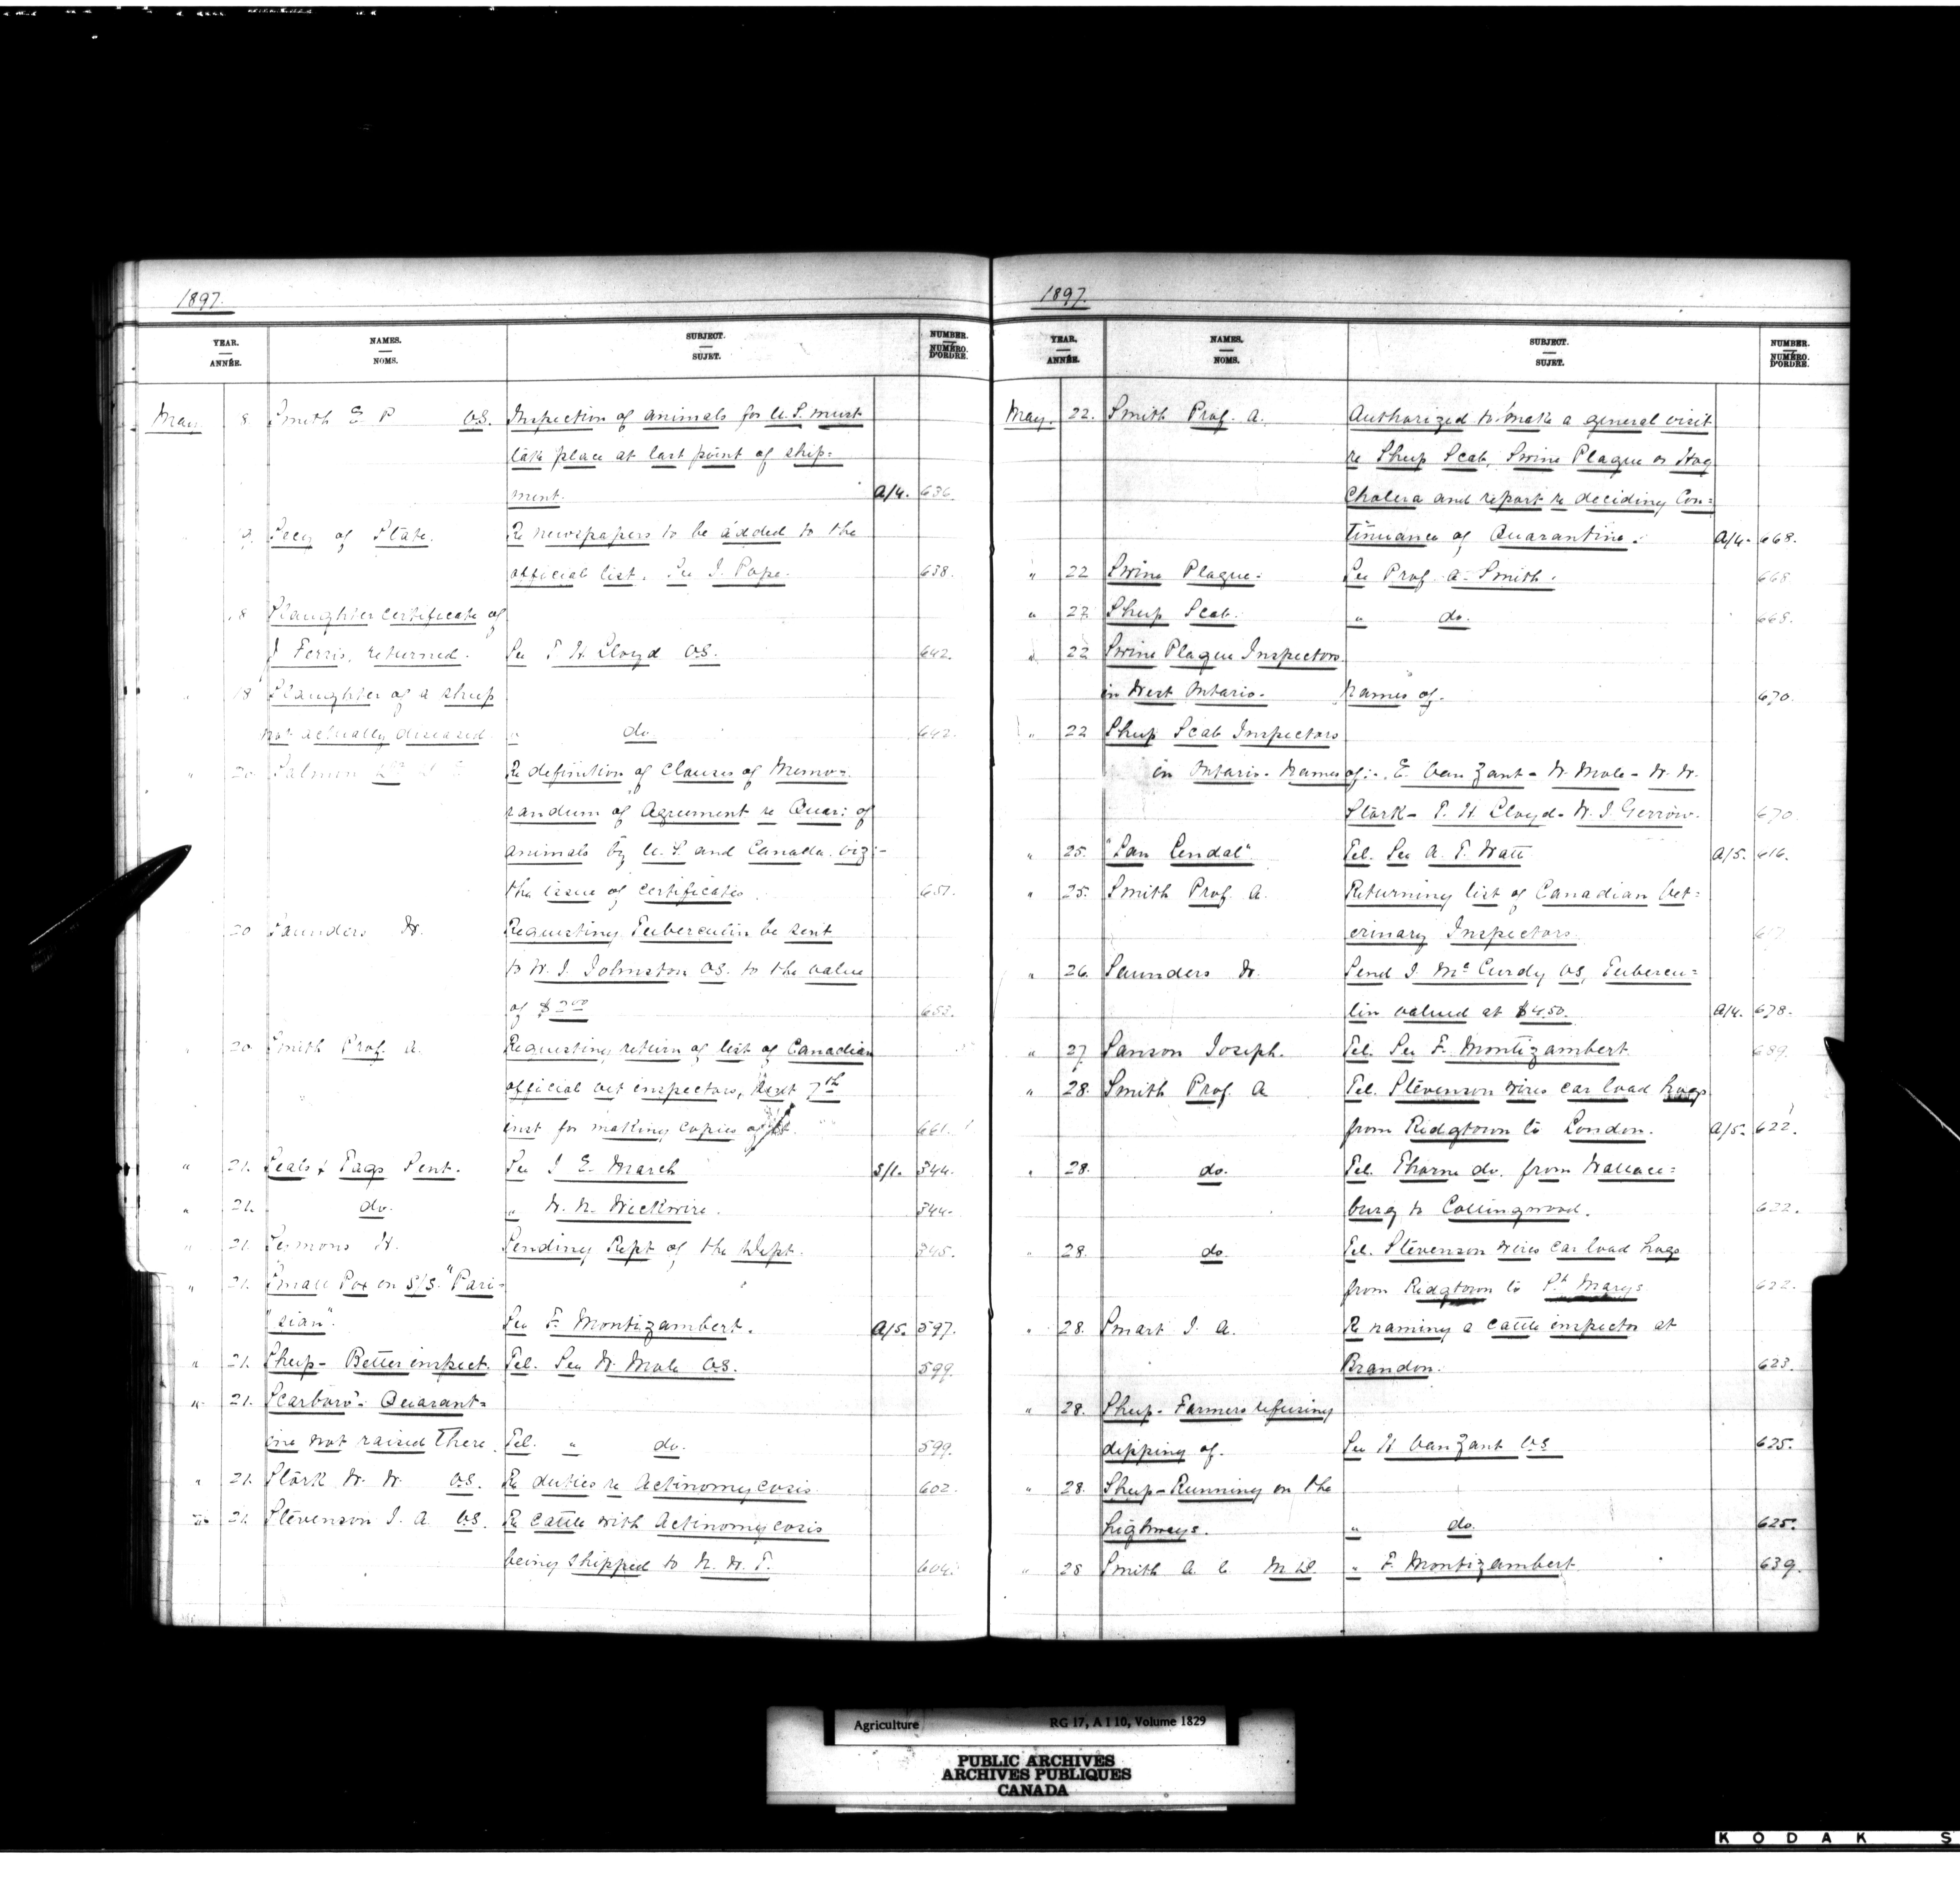 1897.
YEAR. ANNÉE. NAMES. NOMS. SUBJECT. SUJET. NUMBER. NUMÉRO. D'ORDRE.
May 8. Smith E P V.S. Inspection of animals for U.S. must
take place at last point of ship=
ment. A/4. 636.
9. Secy of State. Re newspapers to be added to the
official list. See J. Pope. 638.
18 Slaughter certificate of
J Ferris, returned. See T H Lloyd V.S. 642.
" 18 Slaughter of a sheep
not actually diseased. " do. 642.
" 20 Salmon Re definition of Clauses of Memo=
randum of Agreement re Quar: of
animals by U.S. and Canada. viz:-
the issue of certificates. 651.
20 Saunders W. Requesting Tuberculin be sent
to W. J. Johnston V.S. to the value
of $2.00 653.
" 20. Smith Prof. A. Requesting return of list of Canadian
official vet inspectors, sent 7th
inst for making copies of it. 661.
" 21. Seals & Tags Sent. See J E. March S/1. 344.
" 21. do. " W. N. Wickwire. 344.
" 21. Symons H. Sending Rept of the Dept. 345.
" 21. Small Pox on S/S. "Pari=
"sian". See F. Montizambert. A/5. 597.
" 21. Sheep- Better inspect. Tel. See W. Mole V.S. 599.
" 21. Scarboro'- Quarant=
ine not raised There. Tel. " do. 599.
" 21. Stork W. W. V.S. Re duties re Actinomycosis 602.
" 21. Stevenson J. A. V.S. Re Cattle with Actinomycosis
being shipped to N. W. T. 604.
1897.
YEAR. ANNÉE. NAMES. NOMS. SUBJECT. SUJET. NUMBER. NUMÉRO. D'ORDRE.
May. 22. Smith Prof. A. Authorized to make a general visit
re Sheep Scab, Swine Plague or Hog
Cholera and report re deciding Con=
tinuance of Quarantine. A/4. 668.
" 22 Swine Plague. See Prof. A. Smith. 668
" 22 Sheep Scab. " do. 668.
" 22 Swine Plague Inspectors
in West Ontario. Names of. 670.
" 22 Sheep Scab Inspectors
in Ontario- Names of:-. E. Van Zant- W. Mole- W. W.
Stork- T. H. Lloyd- W. J. Gerrow. 670
" 25. "San Cendal". Tel. See A. T. Watt A/5. 616.
" 25. Smith Prof. A. Returning list of Canadian Vet=
erinary Inspectors. 617
" 26. Saunders W. Send J. McCurdy V.S, Tubercu=
lin valued at $4.50. A/4. 678.
" 27 Sanson Joseph. Tel. See F. Montizambert 689.
" 28. Smith Prof. A Tel. Stevenson wires car load hogs
from Ridgtown to London. A/5. 622.
" 28. do. Tel. Thorne do. from Wallace=
burg to Collingwood. 622.
" 28. do Tel. Stevenson wires car load hogs
from Ridgtown to St Marys 622.
" 28. Smart J. A. Re naming a Cattle inspector at
Brandon. 623.
" 28. Sheep- Farmers refusing
dipping of. See H Van Zant V.S 625.
" 28. Sheep- Running on the
highways. " do. 625.
" 28 Smith A. C M D. " F. Montizambert 639.
Agriculture RG 17, A I 10, Volume 1829
PUBLIC ARCHIVES
ARCHIVES PUBLIQUES
CANADA
KODAK S